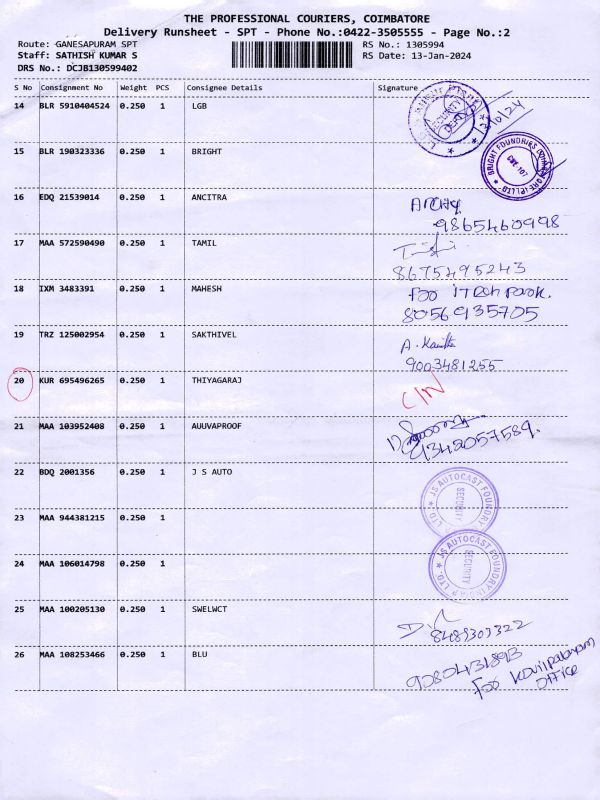 THE PROFESSIONAL COURIERS, COIMBATORE
Delivery Runsheet - SPT - Phone No.:0422-3505555 - Page No.:2
Route: GANESAPURAM SPT RS No.: 1305994
Staff: SATHISH KUMAR S RS Date: 13-Jan-2024
DRS No.: DCJB130599402
S No Consignment No Weight PCS Consignee Details Signature
14 BLR 5910404524 0.250 1 LGB
SECURITY
15 BLR 190323336 0.250 1 BRIGHT
BRIGHT FOUNDRIES (P) LTD.
16 EDQ 21539014 0.250 1 ANCITRA
9865460998
17 MAA 572590490 0.250 1 TAMIL
8675495243
18 IXM 3483391 0.250 1 MAHESH
for iTech park.
8056935705
19 TRZ 125002954 0.250 1 SAKTHIVEL
A.
9003481255
20 KUR 695496265 0.250 1 THIYAGARAJ C/N
21 MAA 103952408 0.250 1 AUUVAPROOF
9342057589.
22 BDQ 2001356 0.250 1 J S AUTO
JS AUTOCAST FOUNDRY
SECURITY
23 MAA 944381215 0.250 1
JS AUTOCAST FOUNDRY INDIA P LTD.
SECURITY
24 MAA 106014798 0.250 1
25 MAA 100205130 0.250 1 SWELWCT
8489303322
26 MAA 108253466 0.250 1 BLU
9080431893
for Kovilpalayam
office